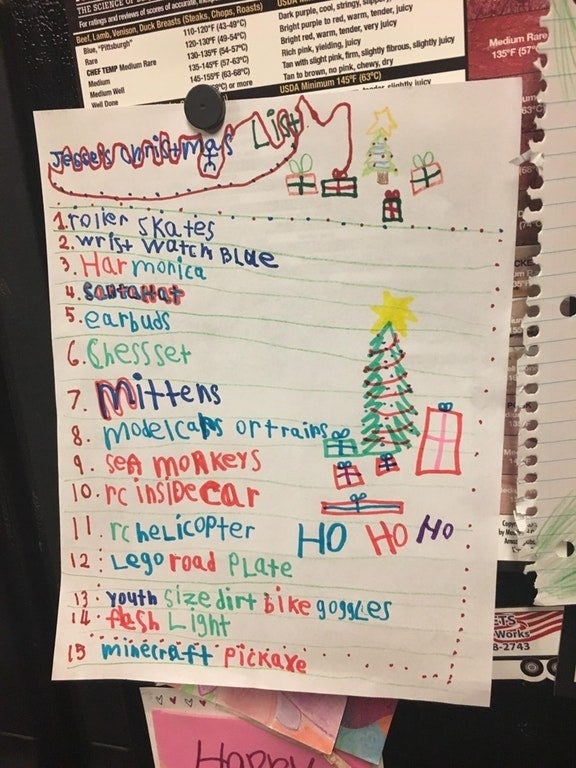 THE SCIENCE OF
For ratings and reviews of scores of accurate,
Beef, Lamb, Venison, Duck Breasts (Steaks, Chops, Roasts)
Blue, "Pittsburgh" 110-120°F (43-49°C)
Rare 120-130°F (49-54°C)
CHEF TEMP Medium Rare 130-135°F (54-57°C)
Medium 135-145°F (57-63°C)
Medium Well 145-155°F (63-68°C)
Well Done °C) or more
Dark purple, cool, stringy,
Bright purple to red, warm, tender, juicy
Bright red, warm, tender, very juicy
Rich pink, yielding, juicy
Tan with slight pink, firm, slightly fibrous, slightly juicy
Tan to brown, no pink, chewy, dry
USDA Minimum 145°F (63°C)
tender, slightly juicy
Medium Rare
135°F (57°
Christmas List
1. roller skates
2. wrist watch BLue
3. Harmonica
4. santa Hat
5. earbuds
6. Chessset
7. Mittens
8. model cars or trains
9. sea monkeys
10. rc inside car
11. rc heLicopter
12. Lego road PLate
13. youth size dirt bike goggles
14. flash Light
15 minecraft pickaxe
HO HO HO
ETS
Works
8-2743
Happy